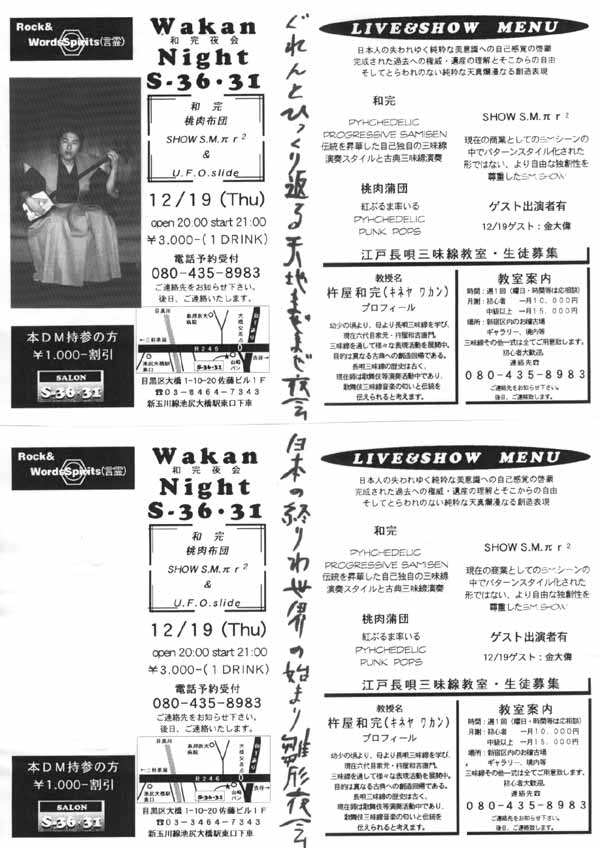 Rock&
WordsSpirits(言霊)
Wakan
和完夜会
Night
S-36・31
和 完
桃肉布団
SHOW S.M.π r²
&
U.F.O.slide
12/19 (Thu)
open 20:00 start 21:00
¥3.000-(1 DRINK)
電話予約受付
080-435-8983
ご連絡先をお知らせ下さい。
後日、ご連絡いたします。
本DM持参の方
¥1.000-割引
SALON
S-36・31
目黒川
大橋
R246
S-36・31
山崎パン
渋谷→
目黒区大橋 1-10-20 佐藤ビル1F
☎03-3464-7343
新玉川線池尻大橋駅東口下車
ぐれんとひっくり返る天地
LIVE&SHOW MENU
日本人の失われゆく純粋な美意識への自己感覚の啓蒙
完成された過去への権威・遺産の理解とそこからの自由
そしてとらわれのない純粋な天真爛漫なる創造表現
和完
PYHCHEDELIC
PROGRESSIVE SAMISEN
伝統を昇華した自己独自の三味線
演奏スタイルと古典三味線演奏
桃肉蒲団
紅ぶるま率いる
PYHCHEDELIC
PUNK POPS
SHOW S.M.π r²
現在の商業としてのS.Mシーンの
中でパターンスタイル化された
形ではない、より自由な独創性を
尊重したS.M.SHOW
ゲスト出演者有
12/19ゲスト:金大偉
江戸長唄三味線教室・生徒募集
教授名
杵屋和完(キネヤ ワカン)
プロフィール
幼少の頃より、母より長唄三味線を学び、
現在六代目家元・杵屋和吉衛門、
三味線を通して様々な表現活動を展開中。
目的は真なる古典への創造回帰である。
長唄三味線の歴史は古く、
現在師は歌舞伎等演奏活動中であり、
歌舞伎三味線音楽の匂いと伝統を
伝えられると考えます。
教室案内
時間:週1回(曜日・時間等は応相談)
月謝:初心者 一月10.000円
中級以上 一月15.000円
場所:新宿区内のお稽古場
ギャラリー、境内等
三味線その他一式は全てご用意致します。
初心者大歓迎。
連絡先☎
080-435-8983
ご連絡先をお知らせ下さい。
後日、ご連絡致します。
Rock&
WordsSpirits(言霊)
Wakan
和完夜会
Night
S-36・31
和 完
桃肉布団
SHOW S.M.π r²
&
U.F.O.slide
12/19 (Thu)
open 20:00 start 21:00
¥3.000-(1 DRINK)
電話予約受付
080-435-8983
ご連絡先をお知らせ下さい。
後日、ご連絡いたします。
本DM持参の方
¥1.000-割引
SALON
S-36・31
目黒川
大橋
R246
S-36・31
山崎パン
渋谷→
目黒区大橋 1-10-20 佐藤ビル1F
☎03-3464-7343
新玉川線池尻大橋駅東口下車
日本の終りわ世界の始まり雛形夜会
LIVE&SHOW MENU
日本人の失われゆく純粋な美意識への自己感覚の啓蒙
完成された過去への権威・遺産の理解とそこからの自由
そしてとらわれのない純粋な天真爛漫なる創造表現
和完
PYHCHEDELIC
PROGRESSIVE SAMISEN
伝統を昇華した自己独自の三味線
演奏スタイルと古典三味線演奏
桃肉蒲団
紅ぶるま率いる
PYHCHEDELIC
PUNK POPS
SHOW S.M.π r²
現在の商業としてのS.Mシーンの
中でパターンスタイル化された
形ではない、より自由な独創性を
尊重したS.M.SHOW
ゲスト出演者有
12/19ゲスト:金大偉
江戸長唄三味線教室・生徒募集
教授名
杵屋和完(キネヤ ワカン)
プロフィール
幼少の頃より、母より長唄三味線を学び、
現在六代目家元・杵屋和吉衛門、
三味線を通して様々な表現活動を展開中。
目的は真なる古典への創造回帰である。
長唄三味線の歴史は古く、
現在師は歌舞伎等演奏活動中であり、
歌舞伎三味線音楽の匂いと伝統を
伝えられると考えます。
教室案内
時間:週1回(曜日・時間等は応相談)
月謝:初心者 一月10.000円
中級以上 一月15.000円
場所:新宿区内のお稽古場
ギャラリー、境内等
三味線その他一式は全てご用意致します。
初心者大歓迎。
連絡先☎
080-435-8983
ご連絡先をお知らせ下さい。
後日、ご連絡致します。